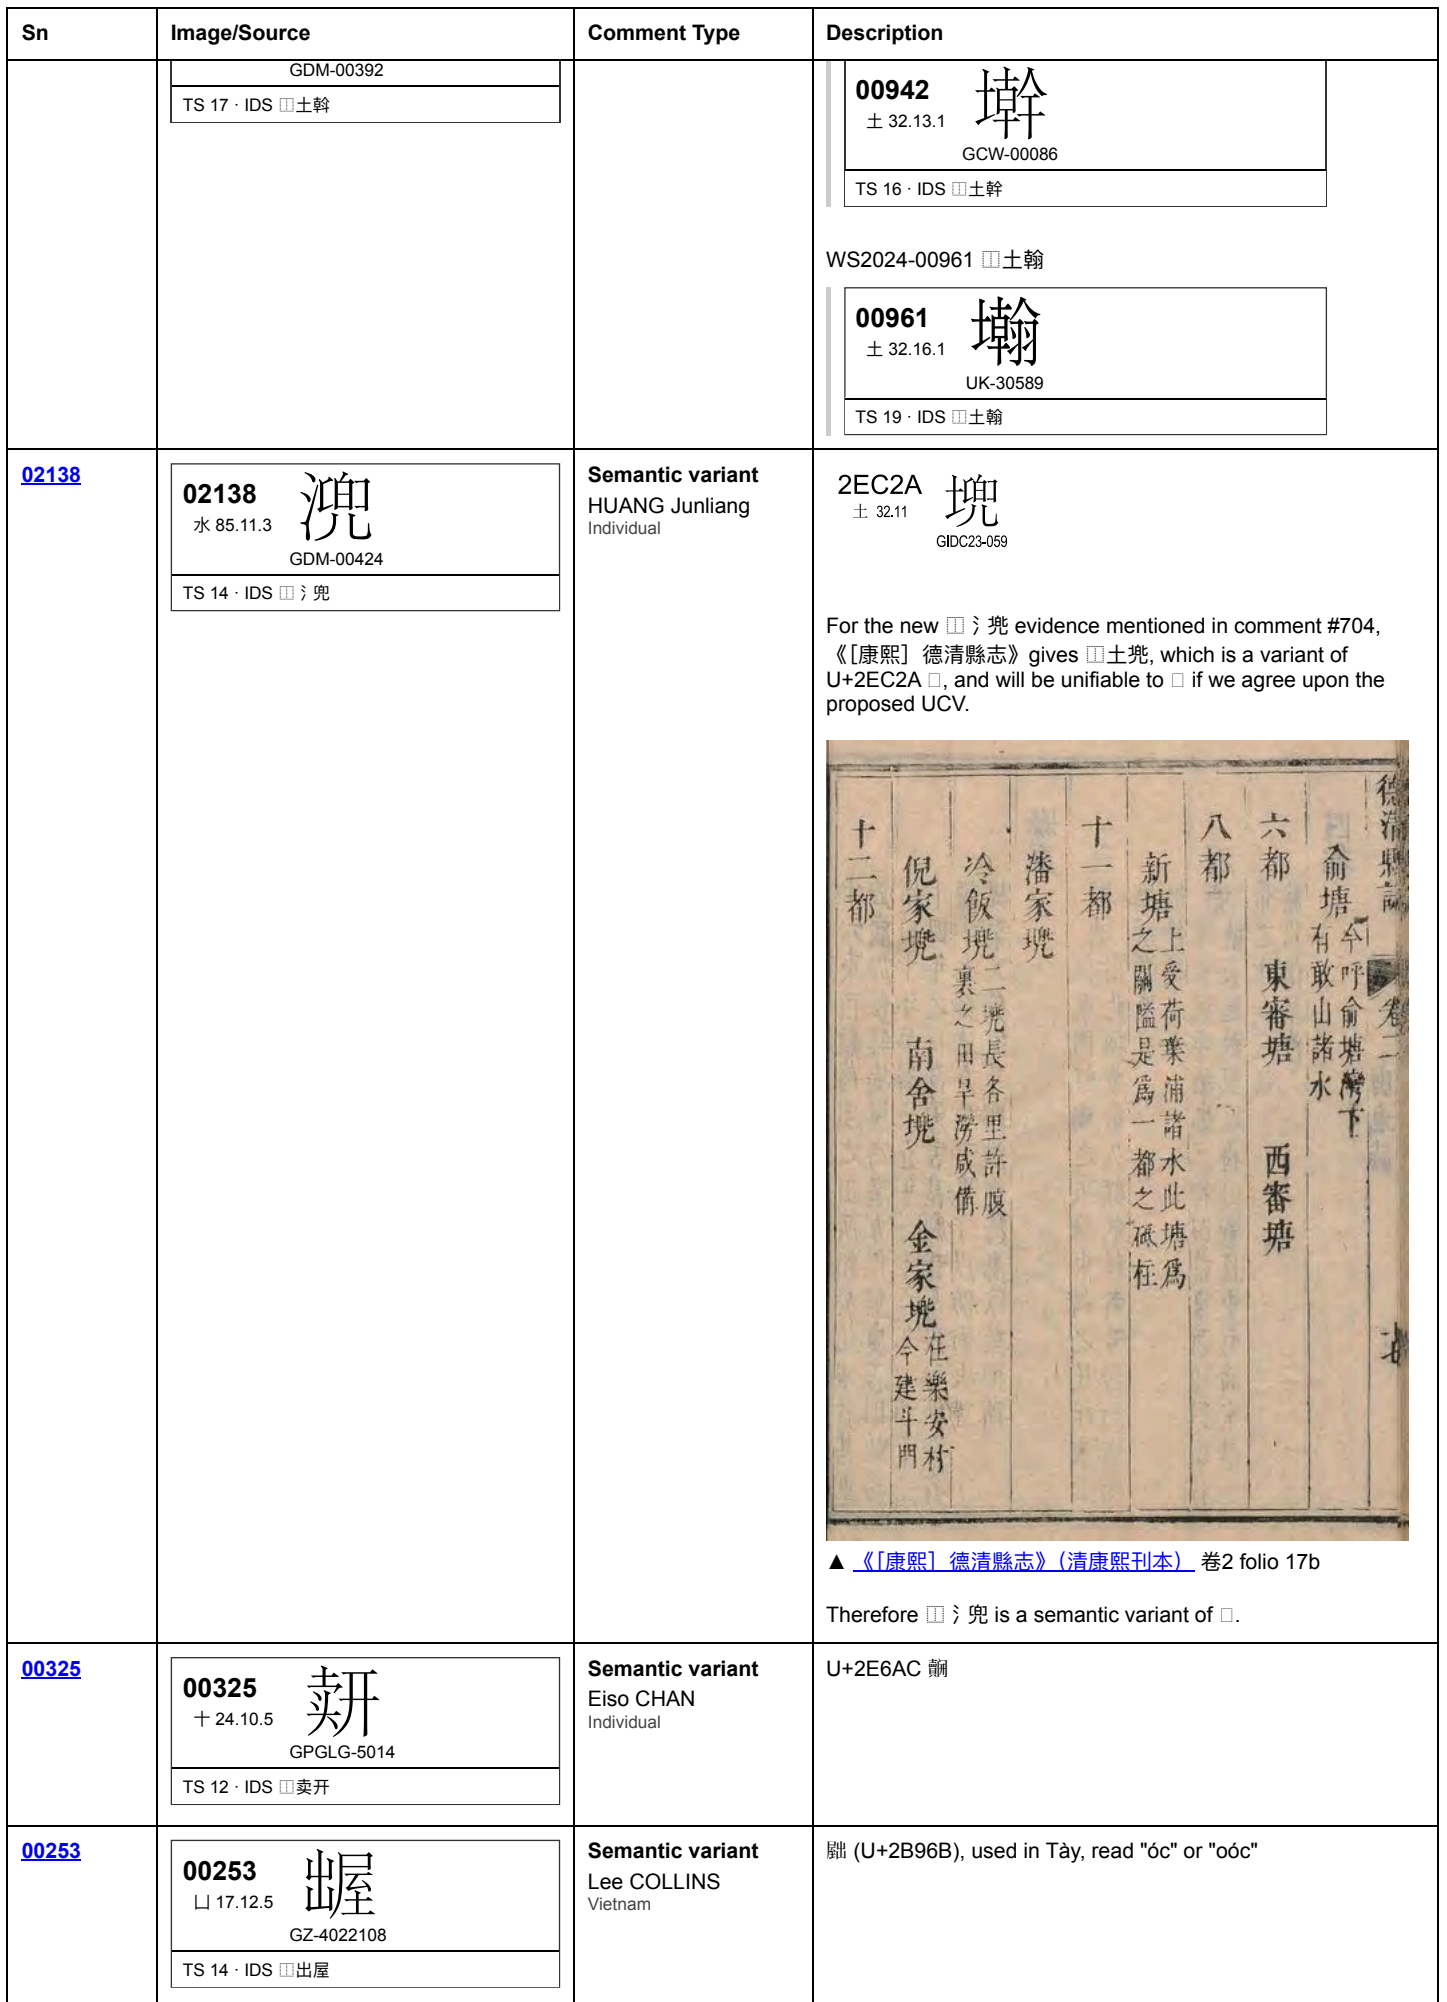 Sn Image/Source Comment Type Description
GDM-00392
TS 17 · IDS ⿰土斡
00942
土 32.13.1
GCW-00086
TS 16 · IDS ⿰土幹
WS2024-00961 ⿰土翰
00961
土 32.16.1
UK-30589
TS 19 · IDS ⿰土翰
02138
02138
水 85.11.3
GDM-00424
TS 14 · IDS ⿰氵兜
Semantic variant
HUANG Junliang
Individual
2EC2A
土 32.11
GIDC23-059
For the new ⿰氵兠 evidence mentioned in comment #704,
《[康熙] 德清縣志》gives ⿰土兠, which is a variant of
U+2EC2A □, and will be unifiable to □ if we agree upon the
proposed UCV.
德清縣誌 卷二
俞塘
今呼俞塘灣下
有敢山諸水
六都 東審塘 西審塘
八都
新塘
上受荷葉浦諸水此塘爲
之關隘是爲一都之砥柱
十一都
潘家
冷飯
長各里許腹
裏之田旱澇咸備
倪家 南舍 金家
在樂安村
今建斗門
十二都
▲ 《[康熙] 德清縣志》(清康熙刊本) 卷2 folio 17b
Therefore ⿰氵兜 is a semantic variant of □.
00325
00325
十 24.10.5
GPGLG-5014
TS 12 · IDS ⿰卖开
Semantic variant
Eiso CHAN
Individual
U+2E6AC
00253
00253
凵 17.12.5
GZ-4022108
TS 14 · IDS ⿰出屋
Semantic variant
Lee COLLINS
Vietnam
(U+2B96B), used in Tày, read "óc" or "oóc"